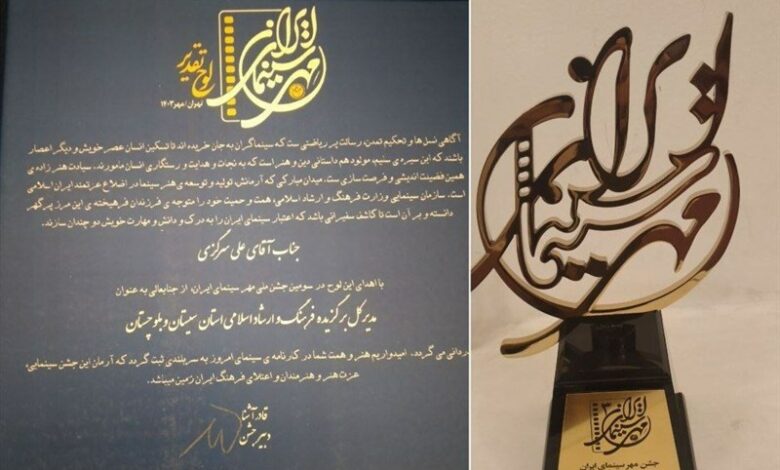 مهر سینمای ایران
لوح تقدیر
تهران/مهر ۱۴۰۳
آگاهی نسل ها و تحکیم تمدن، رسالت پر ریاضتی ست که سینماگران به جان خریده اند تا تسکین انسان عصر خویش و دیگر اعصار
باشند که این سیره ی سنیم، مولود هم داستانی دین و هنر است که به نجات و هدایت و رستگاری انسان مامورند. سیادت هنر زاده ی
همین فضیلت اندیشی و فرصت سازی ست. میدان مبارکی که آرمانش، تولید و توسعه ی هنر سینما در اضلاع عزتمند ایران اسلامی
است. سازمان سینمایی وزارت فرهنگ و ارشاد اسلامی، همت و حمیت خود را متوجه ی فرزندان فرهیخته ی این مرز پرگهر
دانسته و بر آن است تا کاشف سفیرانی باشد که اعتبار سینمای ایران را به درک و دانش و مهارت خویش دو چندان سازند.
جناب آقای علی سرگزی
با اهدای این لوح در سومین جشن ملی مهر سینمای ایران، از جنابعالی به عنوان
مدیر کل برگزیده فرهنگ و ارشاد اسلامی استان سیستان و بلوچستان
دردانی می گردد. امیدواریم هنر و همت شما در کارنامه ی سینمای امروز به سربلندی ثبت گردد که آرمان این جشن سینمایی،
عزت هنر و هنرمندان و اعتلای فرهنگ ایران زمین میباشد.
قادر آشنا
دبیر جشن
مهر سینمای ایران
مهر سینمای ایران
۳
جشن مهر سینمای ایران